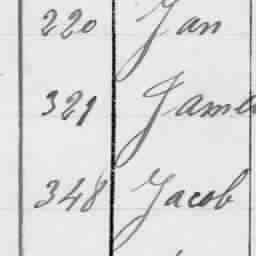 220 Jan
321 James
348 Jacob